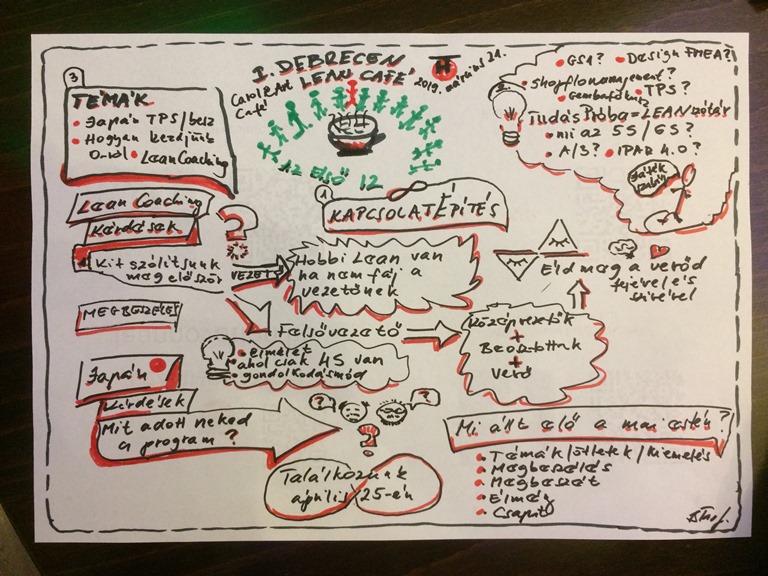 I. DEBRECEN
LEAN CAFÉ
Carol & Art
Café
2019. március 21.
H
AZ ELSŐ 12
3
TÉMÁK
Japán TPS/besz
Hogyan kezdjünk
0-ról
LeanCoaching
GS1?
Design FMEA?
Shopfloormanagement?
TPS?
Tudás Próba = LEAN szótár
mi az 5S / 6S?
A/3?
IPAR 4.0?
Játék
1
KAPCSOLATÉPÍTÉS
Lean Coaching
Kérdések
?
Kit szólítsunk
meg először
VEZETŐ
Hobbi Lean van
ha nem fáj a
vezetőnek
Éld meg a vevőd
fejével és
szívével
MEGBESZÉLÉS
Felsővezető
elmélet
ahol csak 4S van
gondolkodásmód
Középvezetők
+
Beosztottak
+
Vevő
Japán
Kérdések
Mit adott neked
a program?
?
?
?
Mi állt elő a mai estén?
Témák / ötletek / kiemelés
Megbeszélés
Megbeszélt
Élmény
Csapat
Találkozunk
április 25-én